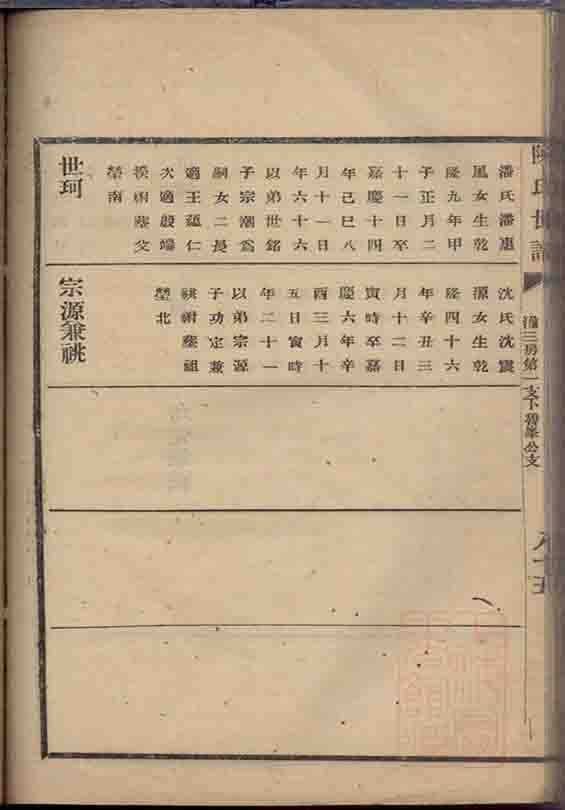 氏世譜
三房第一支下
公支
潘氏潘惠
風女生乾
隆九年甲
子正月二
十一日卒
嘉慶十四
年己巳八
月十一日
年六十六
以弟世銘
子宗潮爲
嗣女二長
適王蘊仁
次適殷端
揆祔葬父
塋南
世珂
沈氏沈震
源女生乾
隆四十六
年辛丑三
月十二日
寅時卒嘉
慶六年辛
酉三月十
五日寅時
年二十一
以弟宗源
子功定兼
祧祔葬祖
塋北
宗源兼祧